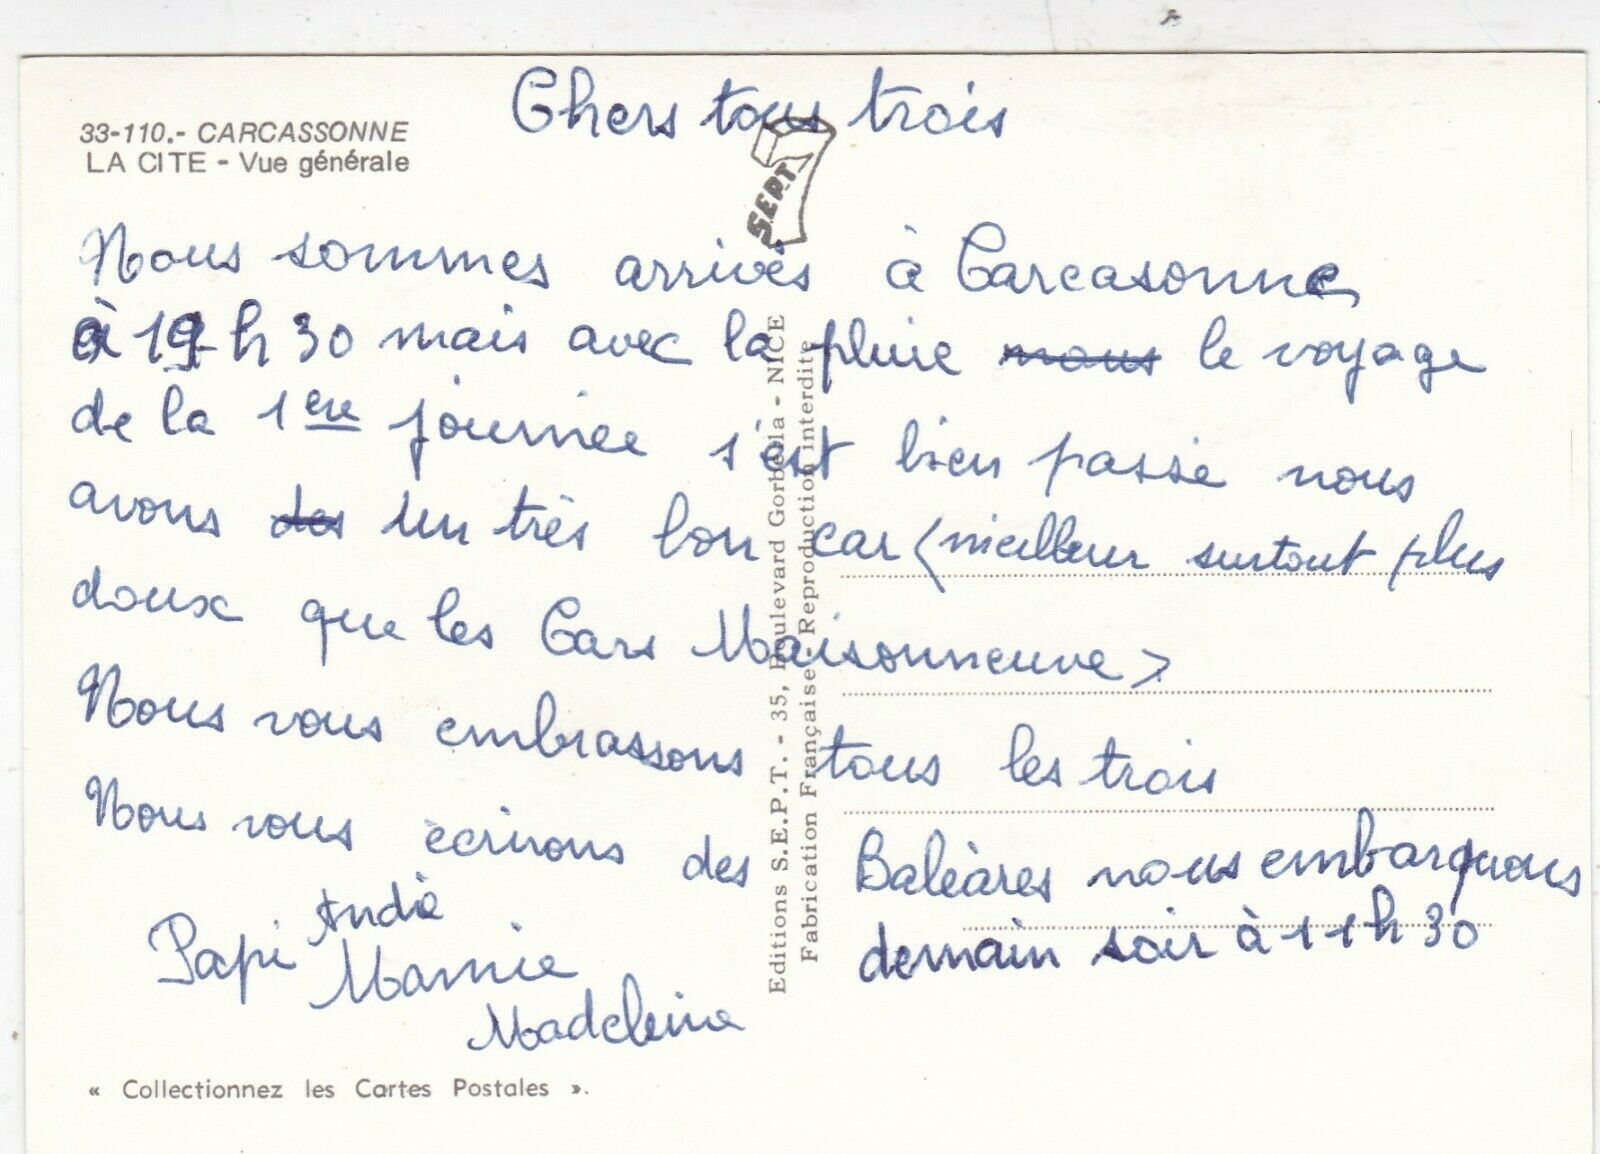 33-110.- CARCASSONNE
LA CITE - Vue générale
Chers tous trois
SEPT
Nous sommes arrivés à Carcasonne
à 19 h 30 mais avec la pluie nous le voyage
de la 1ère journée s'est bien passé nous
avons des un très bon car (meilleur surtout plus
doux que les Cars Maisonneuve)
Nous vous embrassons tous les trois
Nous vous écrivons des Baléares nous embarquons
demain soir à 11h30
Papi André
Mamie
Madeleine
Editions S.E.P.T. - 35, Boulevard Gorbella - NICE
Fabrication Française - Reproduction interdite
« Collectionnez les Cartes Postales ».